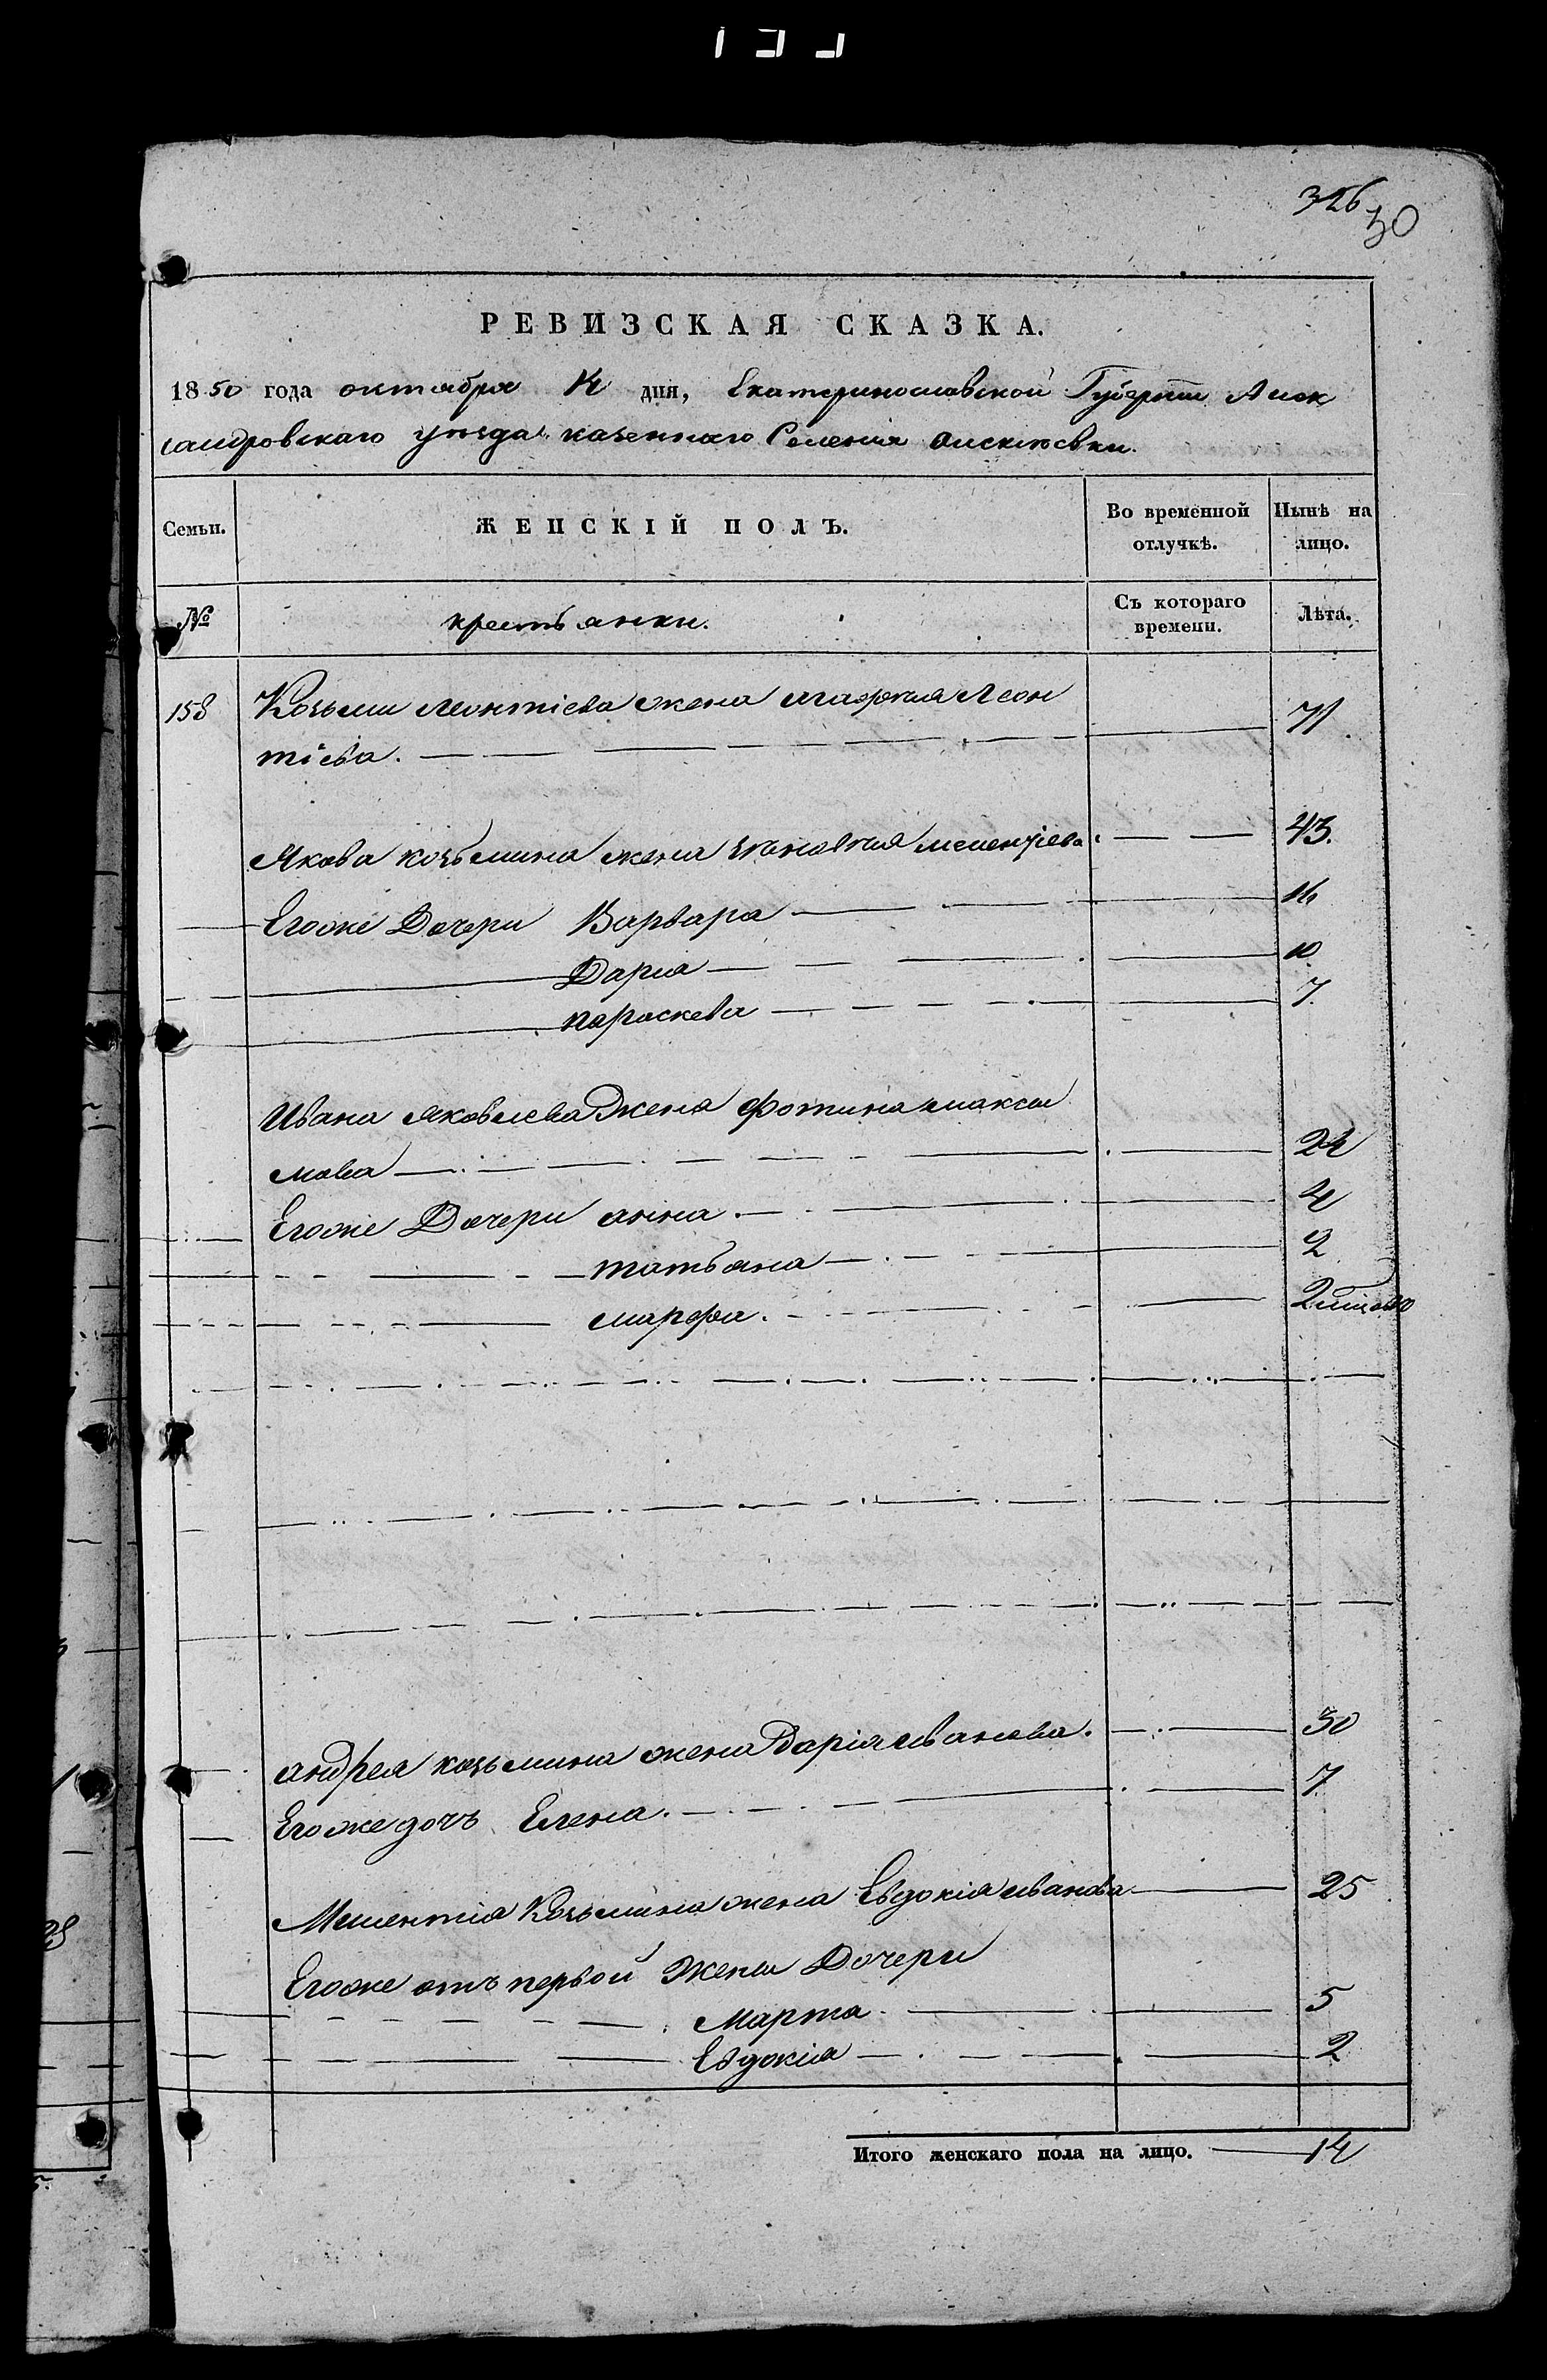 326
30
РЕВИЗСКАЯ СКАЗКА.
1850 года октября 14 дня, Екатеринославской Губерніи Алек
сандровскаго уѣзда казеннаго Селенія
Семьи. ЖЕНСКІЙ ПОЛЪ. Во временной отлучкѣ. Нынѣ на лицо.
№ крестьянки. Съ котораго времени. Лѣта.
158 Козьмы Леонтіева жена Агафія Леон
тіева. 71
Якова козьмина жена мелентіева 43.
Егоже Дочери Варвара 16
Дарія 10
параскева 7
Ивана Яковлева Жена Фотина макси
мова 24
Егоже Дочери анна. 4
татьяна 2
марфа. 2
андрея козьмина жена Дарія иванова. 30
Егоже дочь Елена. 7
Мелентія Козьмина жена Евдокія иванова 25
Егоже отъ первой Жены Дочери
Марта 5
Евдокія 2
Итого женскаго пола на лицо. 14